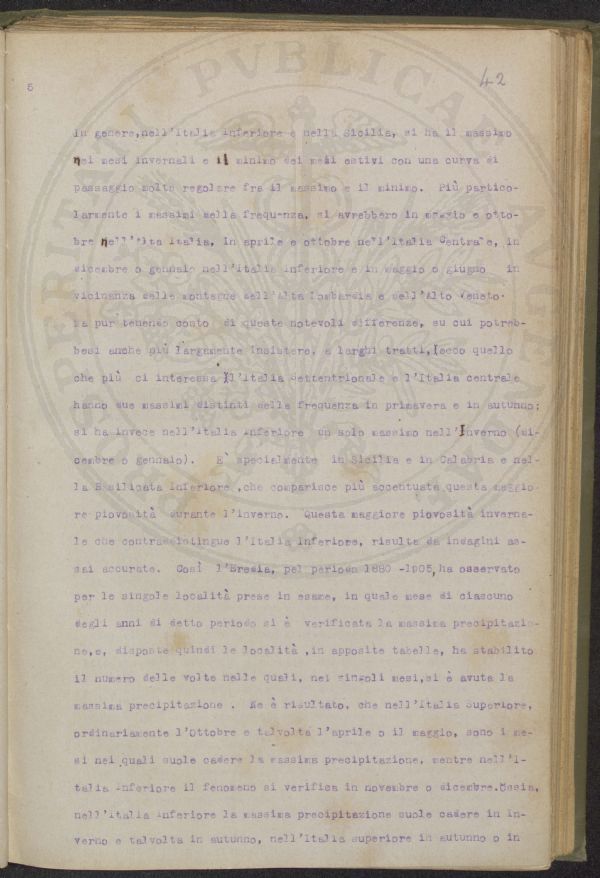 42
5
In genere,nell'Italia Inferiore e nella Sicilia, si ha il massimo
nei mesi invernali e il minimo dei mesi estivi con una curva di
passaggio molto regolare fra il massimo e il minimo. Più partico-
larmente i massimi della frequenza, si avrebbero in maggio e otto-
bre nell'Alta Italia, in aprile e ottobre nell'Italia Centrale, in
dicembre o gennaio nell'Italia Inferiore e in maggio o giugno in
vicinanza delle montagne dell'Alta Lombardia e dell'Alto Veneto.
Ma pur tenendo conto di queste notevoli differenze, su cui potreb-
besi anche più largamente insistere, a larghi tratti, ecco quello
che più ci interessa l'Italia Settentrionale e l'Italia centrale
hanno due massimi distinti della frequenza in primavera e in autunno;
si ha invece nell'Italia Inferiore un solo massimo nell'Inverno (di-
cembre o gennaio). E' specialmente in Sicilia e in Calabria e nel-
la Basilicata Inferiore ,che comparisce più accentuata questa maggio-
re piovosità durante l'inverno. Questa maggiore piovosità inverna-
le che contraddistingue l'Italia Inferiore, risulta da indagini as-
sai accurate. Così l'Eredia, pel periodo 1880 -1905, ha osservato
per le singole località prese in esame, in quale mese di ciascuno
degli anni di detto periodo si è verificata la massima precipitazio-
ne,e, disposte quindi le località ,in apposite tabelle, ha stabilito
il numero delle volte nelle quali, nei singoli mesi,si è avuta la
massima precipitazione . Ne è risultato, che nell'Italia Superiore,
ordinariamente l'Ottobre e talvolta l'aprile o il maggio, sono i me-
si nei quali suole cadere la massima precipitazione, mentre nell'I-
talia Inferiore il fenomeno si verifica in novembre o dicembre.Ossia,
nell'Italia Inferiore la massima precipitazione suole cadere in in-
verno e talvolta in autunno, nell'Italia superiore in autunno o in